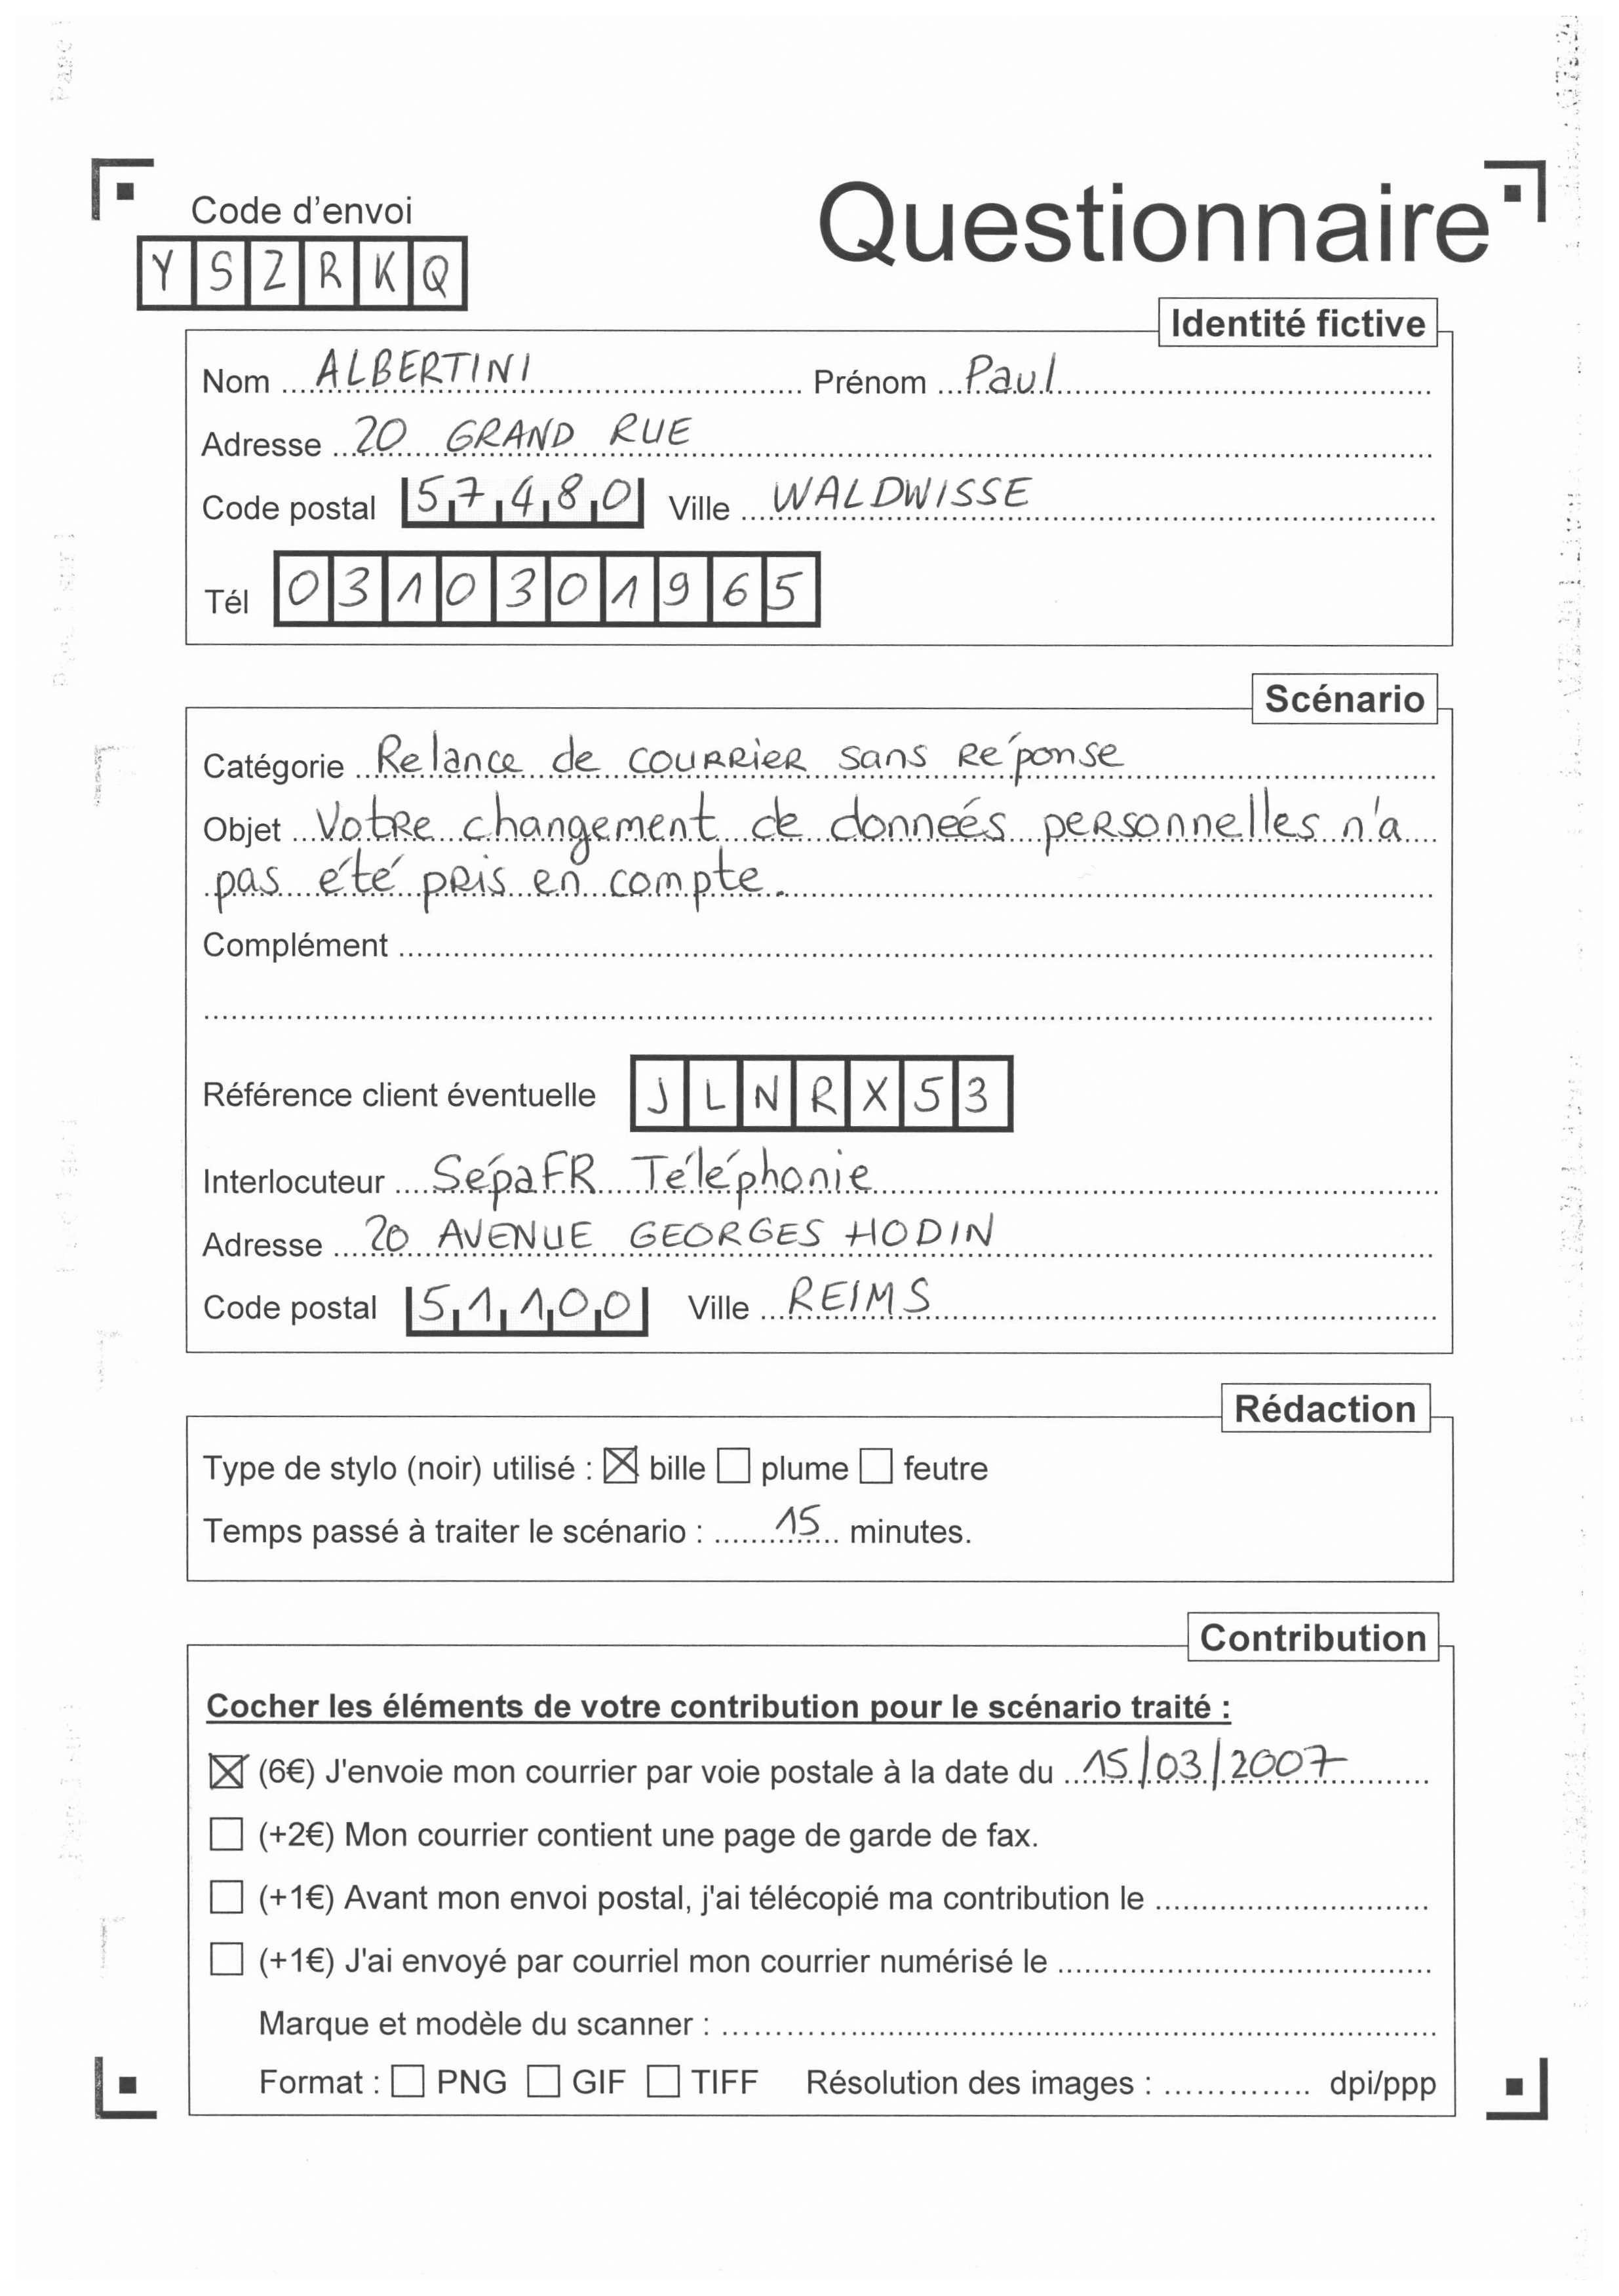 Code d'envoi
Questionnaire
YSZRKQ
Identité fictive
Nom ALBERTINI Prénom Paul
Adresse 20 GRAND RUE
Code postal 57480 Ville WALDWISSE
Tél 0310301965
Scénario
Catégorie Relance de couRRieR sans Réponse
Objet VotRe changement de données peRsonnelles n'a
pas été pRis en compte.
Complément
Référence client éventuelle JLNRX53
Interlocuteur SépaFR Téléphonie
Adresse 20 AVENUE GEORGES HODIN
Code postal 51100 Ville REIMS
Rédaction
Type de stylo (noir) utilisé : ☒ bille ☐ plume ☐ feutre
Temps passé à traiter le scénario : 15 minutes.
Contribution
Cocher les éléments de votre contribution pour le scénario traité :
☒ (6€) J'envoie mon courrier par voie postale à la date du 15/03/2007
☐ (+2€) Mon courrier contient une page de garde de fax.
☐ (+1€) Avant mon envoi postal, j'ai télécopié ma contribution le
☐ (+1€) J'ai envoyé par courriel mon courrier numérisé le
Marque et modèle du scanner :
Format : ☐ PNG ☐ GIF ☐ TIFF Résolution des images : dpi/ppp